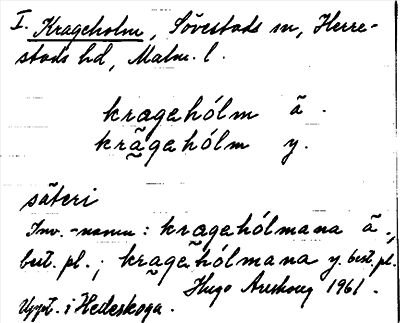 I. Krageholm, Sövestads sn, Herre-
stads hd, Malm. l.
kragehólm ä.
krãgehólm y.
säteri
Inv.-namn: kragehólmana ä.,
best. pl.; krãgehólmana y. best. pl.
Hugo Areskoug 1961.
Uppt. i Hedeskoga.